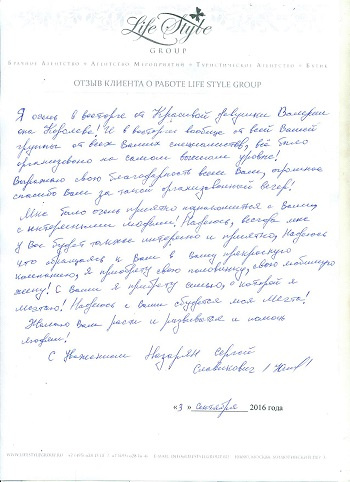 Life Style
GROUP
Брачное Агентство • Агентство Мероприятий • Туристическое Агентство • Бутик
ОТЗЫВ КЛИЕНТА О РАБОТЕ LIFE STYLE GROUP
Я очень в восторге от Красивой девушки Валерии
она Королева! И в восторге вообще от всей Вашей
группы от всех Ваших специалистов, всё было
организовано на самом высшем уровне!
Выражаю свою благодарность всем Вам, огромное
спасибо Вам за такой организованный вечер!
Мне было очень приятно познакомится с Вами,
с интересными людьми! Надеюсь, всегда мне
у Вас будет также интересно и приятно, надеюсь
что обращаясь к Вам в Вашу прекрасную
компанию, я приобрету свою половинку, свою любимую
жену! С Вами я приобрету семью, о которой я
мечтаю! Надеюсь с вами сбудется моя мечта!
Желаю вам расти и развиваться и помочь
людям!
С Уважением Назарян Сергей
Славикович
« 3 » сентября 2016 года